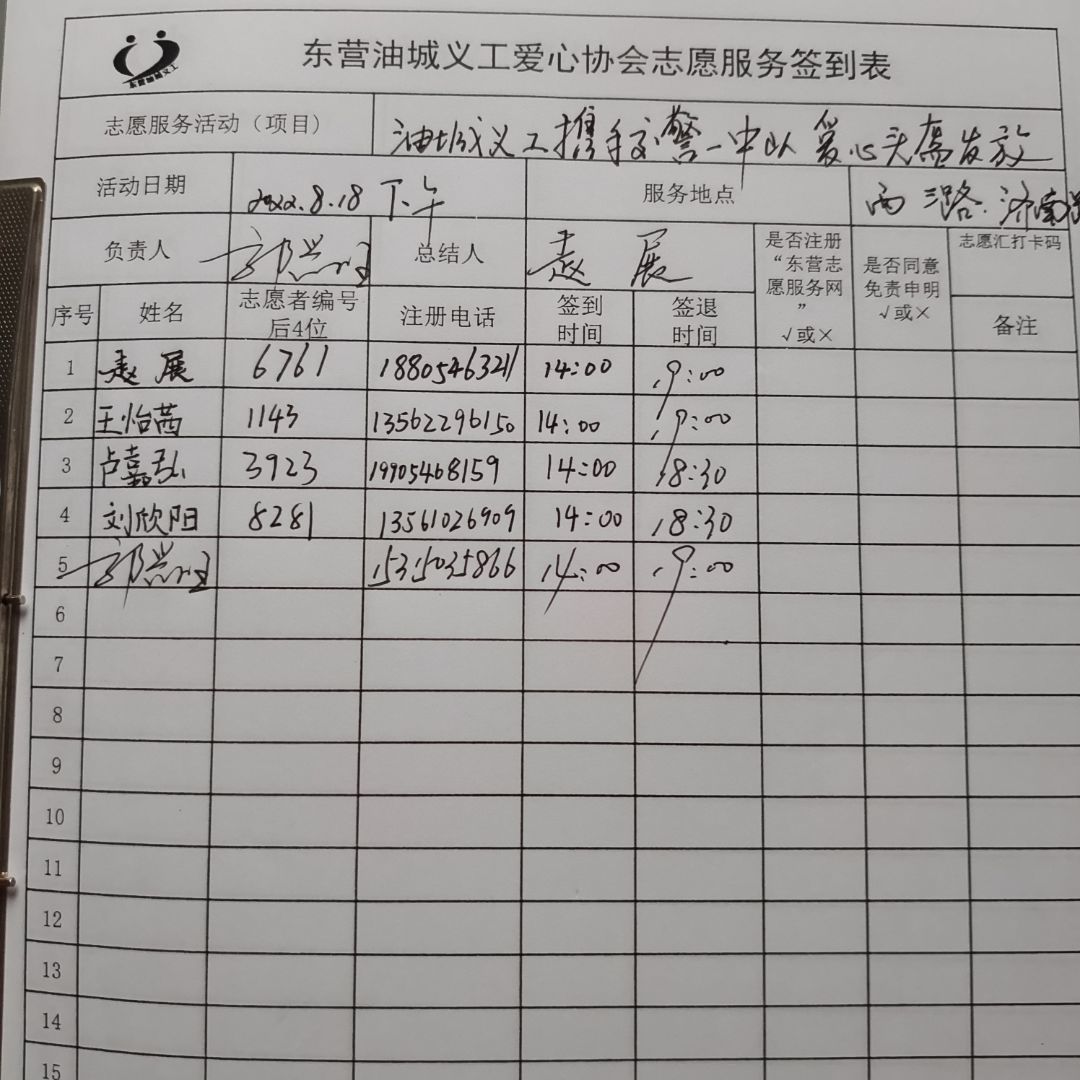 东营油城义工
东营油城义工爱心协会志愿服务签到表
志愿服务活动（项目） 油城义工携手交警一中队爱心头盔发放
活动日期 2022.8.18 下午 服务地点 西三路.济南
负责人 郭 总结人 赵展 是否注册“东营志愿服务网”√或× 是否同意免责申明√或× 志愿汇打卡码
序号 姓名 志愿者编号后4位 注册电话 签到时间 签退时间 备注
1 赵展 6761 18805463211 14:00 19:00
2 王怡茜 1143 13562296150 14:00 19:00
3 卢嘉弘 3923 19905468159 14:00 18:30
4 刘欣阳 8281 13561026909 14:00 18:30
5 郭 15315035866 14:00 19:00
6
7
8
9
10
11
12
13
14
15